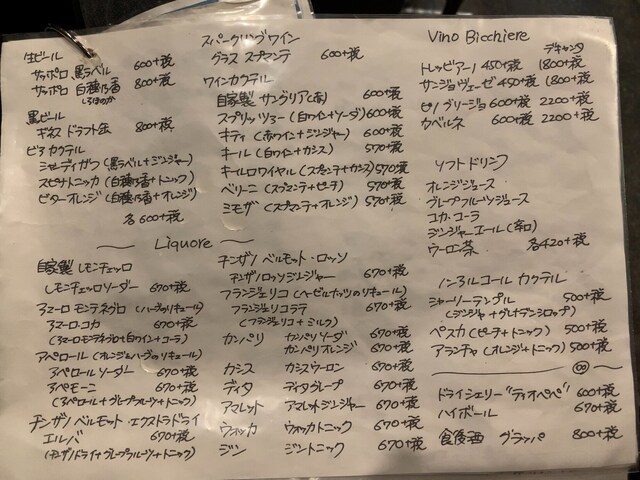 生ビール
サッポロ 黒ラベル 600+税
サッポロ 白穂乃香 800+税
しろほのか
黒ビール
ギネス ドラフト缶 800+税
ビアカクテル
シャンディガフ (黒ラベル+ジンジャー)
スピナトニッカ (白穂乃香+トニック)
ビターオレンジ (白穂乃香+オレンジ)
各600+税
スパークリングワイン
グラス スプマンテ 600+税
ワインカクテル
自家製 サングリア(赤) 600+税
スプリッツァー (白ワイン+ソーダ) 600+税
キティ (赤ワイン+ジンジャー) 600+税
キール (白ワイン+カシス) 570+税
キールロワイヤル (スプマンテ+カシス) 570+税
ベリーニ (スプマンテ+ピーチ) 570+税
ミモザ (スプマンテ+オレンジ) 570+税
Vino Bicchiere
デキャンタ
トレッビアーノ 450+税 1800+税
サンジョヴェーゼ 450+税 1800+税
ピノ グリージョ 600+税 2200+税
カベルネ 600+税 2200+税
ソフトドリンク
オレンジジュース
グレープフルーツジュース
コカ・コーラ
ジンジャーエール (辛口)
ウーロン茶 各420+税
~ Liquore ~
自家製 レモンチェッロ
レモンチェッロソーダー 670+税
アマーロ モンテネグロ (ハーブのリキュール)
アマーロ・コカ 670+税
(アマーロモンテネグロ+白ワイン+コーラ)
アペロール (オレンジ&ハーブのリキュール)
アペロール ソーダー 670+税
アペモーニ 670+税
(アペロール+グレープフルーツ+トニック)
チンザノ ベルモット エクストラドライ
エルバ 670+税
(チンザノドライ+グレープフルーツ+トニック)
チンザノ ベルモット・ロッソ
チンザノロッソジンジャー 670+税
フランジェリコ (ヘーゼルナッツのリキュール)
フランジェリコラテ 670+税
(フランジェリコ+ミルク)
カンパリ カンパリソーダ 670+税
カンパリオレンジ 670+税
カシス カシスウーロン 670+税
ディタ ディタグレープ 670+税
アマレット アマレットジンジャー 670+税
ウォッカ ウォッカトニック 670+税
ジン ジントニック 670+税
ノンアルコール カクテル
シャーリーテンプル 500+税
(ジンジャ+グレナデンシロップ)
ペスカ (ピーチ+トニック) 500+税
アランチャ (オレンジ+トニック) 500+税
ドライシェリー "ティオペペ" 600+税
ハイボール 670+税
食後酒 グラッパ 800+税